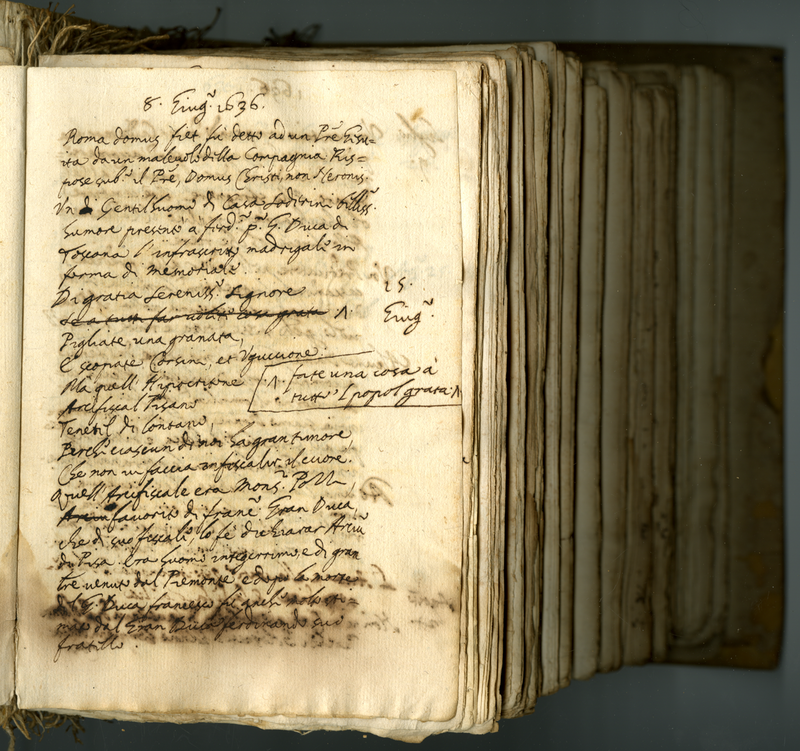 8. Giug.° 1636.
Roma domus fiet fu detto ad un Prē Gesu=
ita da un malevolo della Compagnia Ris=
pose sub.° il Prē, Domus Christi, non Neronis.
Un Gentilhuomo di Casa Soderini
humore presentò a ferd.° p.° G. Duca di
Toscana l'infrascritto madrigale in
forma di memoriale.
Di gratia Sereniss.° Signore
cosa grata Λ.
Pigliate una granata,
E scopate Corsini, et Uguccione.
Ma quell'
Arcifiscal Pisano
Tenetel di lontano,
Perche ciascun di noi ha gran timore,
Che non vi faccia infiscalir il cuore.
Quell'Arcifiscale era Mons.°
favorito di franc.° Gran Duca,
che di suo fiscale, lo fè dichiarar Arciv.°
di Pisa. era huomo integerrimo, e di gran
venuto dal Piemonte e dopo la morte
del G. Duca francesco fu anche molto sti=
mato dal Gran Duca ferdinando suo
fratello.
25.
Giug.°
.Λ. fate una cosa à
tutto 'l popol grata.Λ